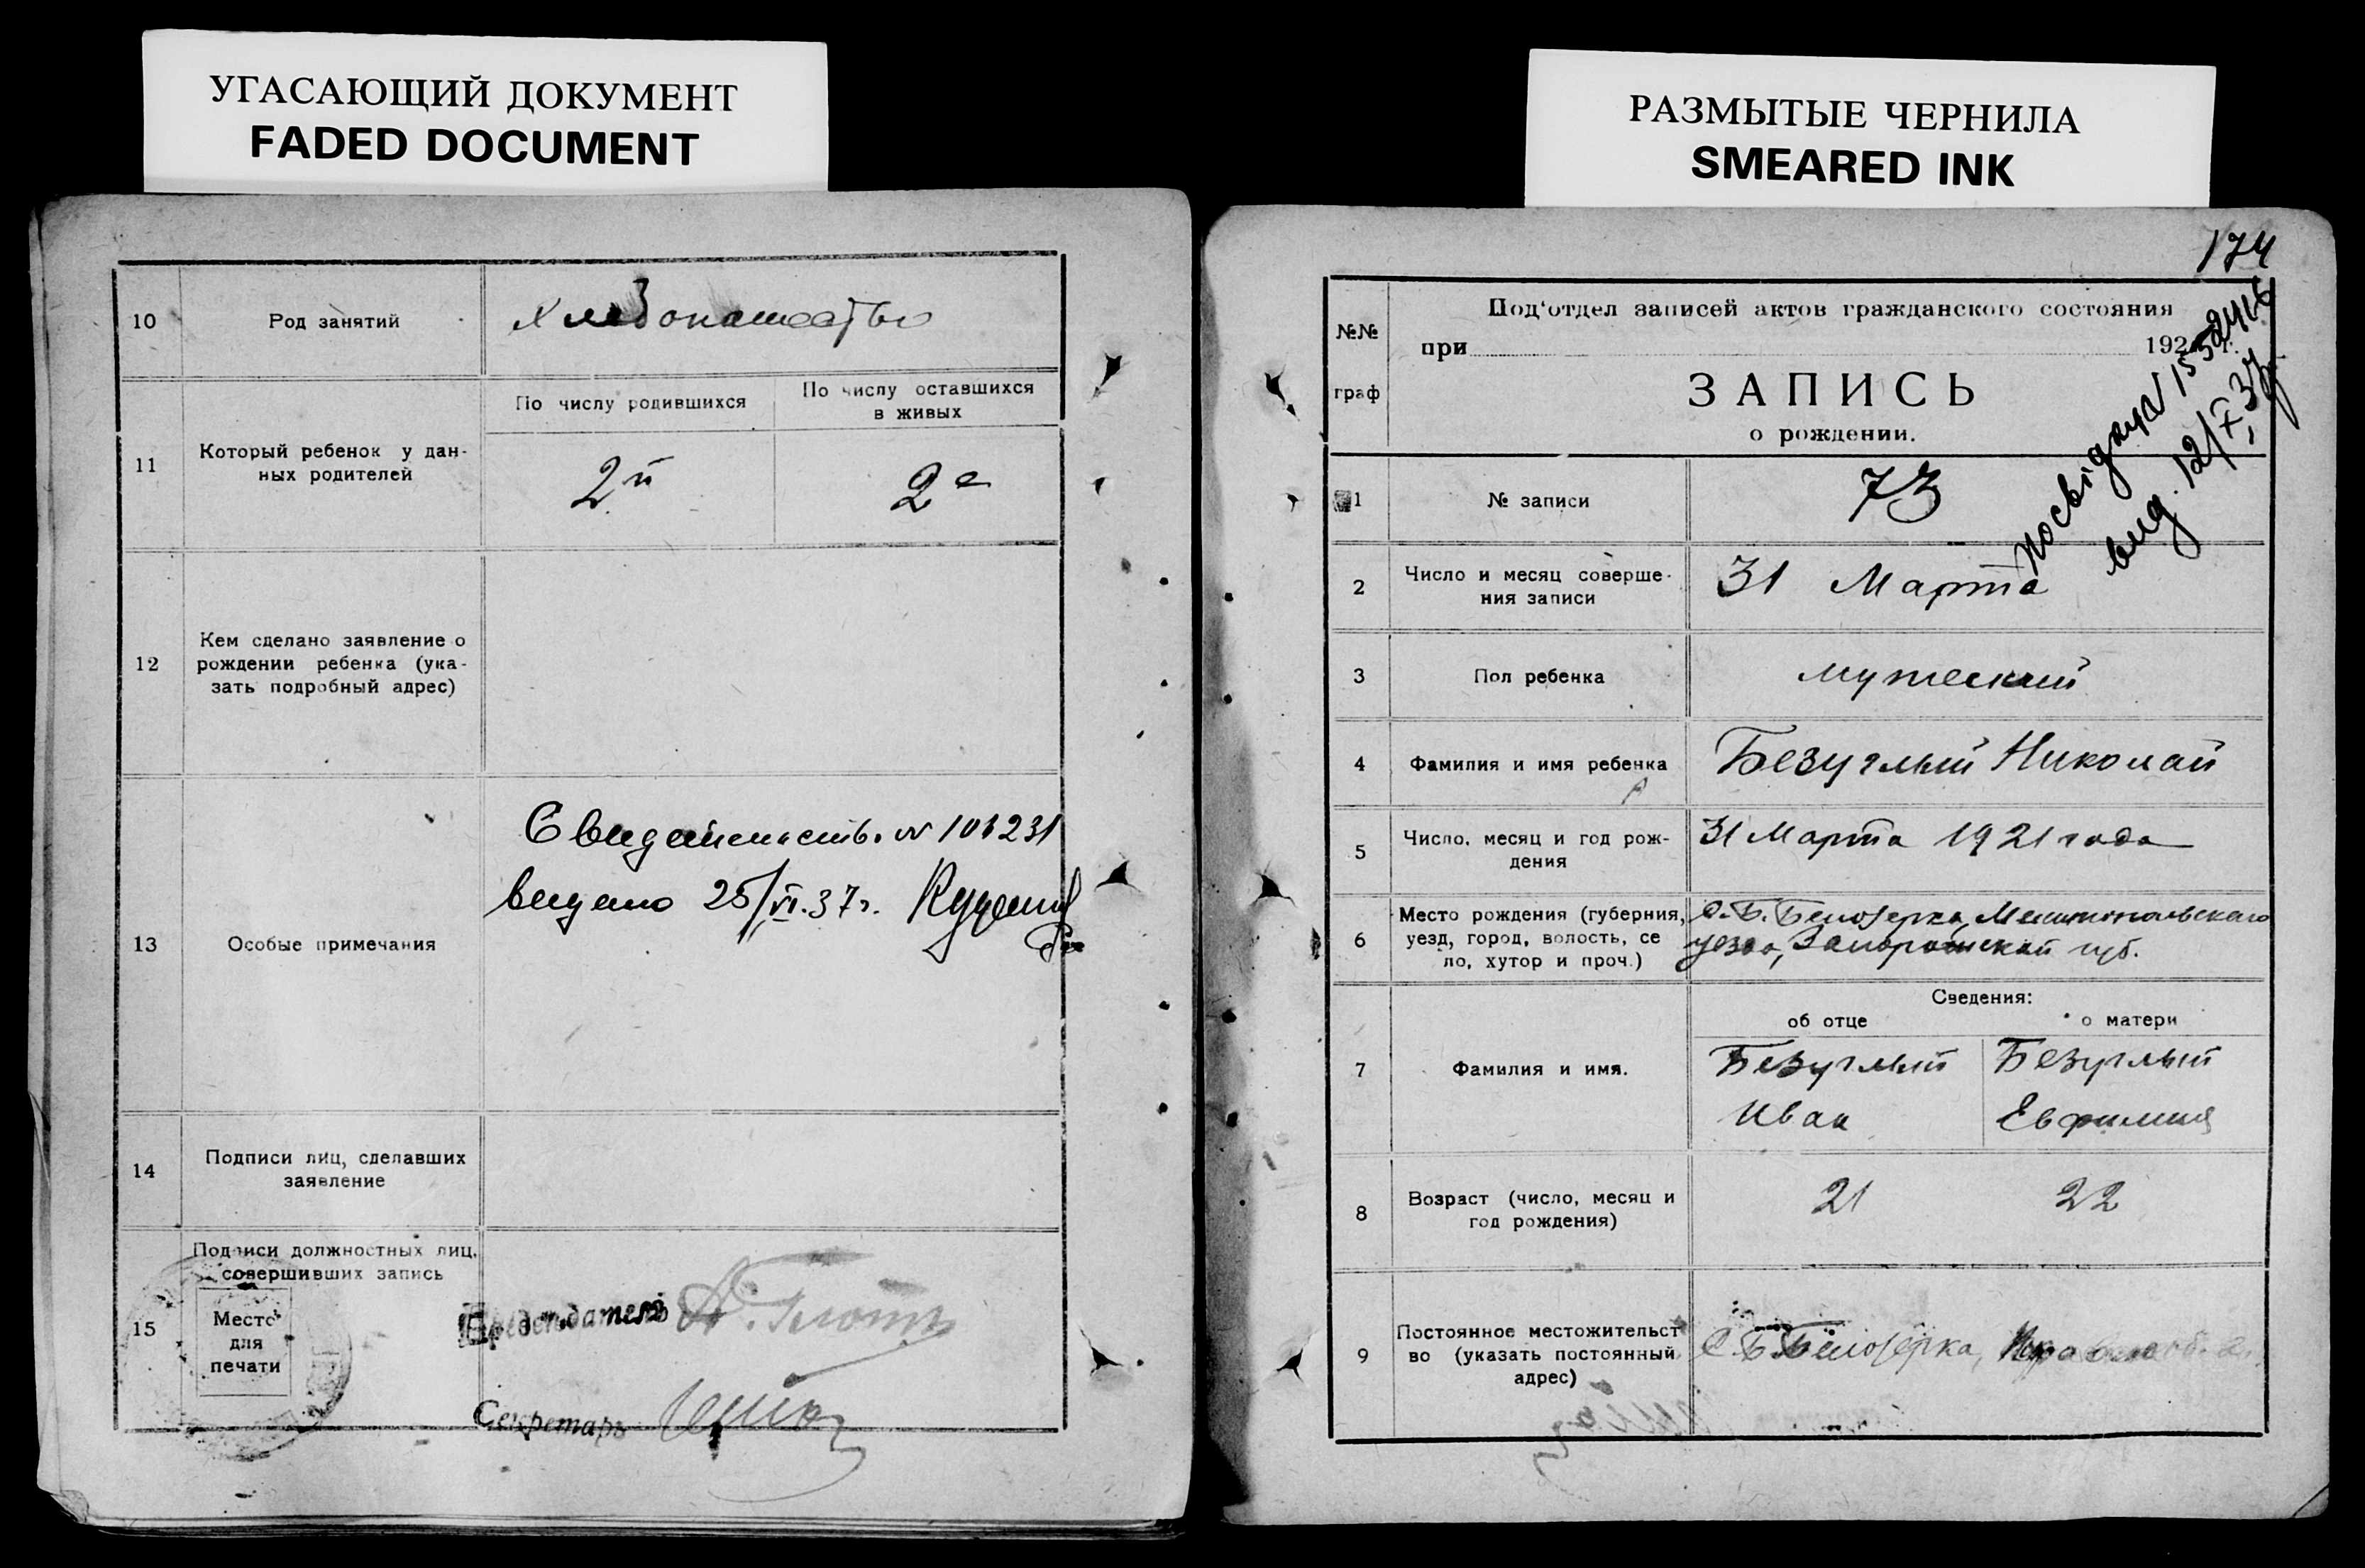 УГАСАЮЩИЙ ДОКУМЕНТ
FADED DOCUMENT
10
Род занятий
Хлебопашество
11
Который ребенок у дан-
ных родителей
По числу родившихся
2й
По числу оставшихся
в живых
2е
12
Кем сделано заявление о
рождении ребенка (ука-
зать подробный адрес)
13
Особые примечания
Свидетельств. №
видано 25/VI.37г.
14
Подписи лиц, сделавших
заявление
15
Подписи должностных лиц,
совершивших запись
Место
для
печати
Председатель
Секретарь
РАЗМЫТЫЕ ЧЕРНИЛА
SMEARED INK
174
№№
граф
Под'отдел записей актов гражданского состояния
при 192 г.
ЗАПИСЬ
о рождении.
посвідку
вид. 12/X 37
1
№ записи
73
2
Число и месяц соверше-
ния записи
31 Марта
3
Пол ребенка
мужеский
4
Фамилия и имя ребенка
Безуглый Николай
5
Число, месяц и год рож-
дения
31 Марта 1921 года
6
Место рождения (губерния,
уезд, город, волость, се
ло, хутор и проч.)
с. Б. Белозерка, Мелитопольского
уезда, Запорожской губ.
Сведения:
об отце
о матери
7
Фамилия и имя.
Безуглый
Иван
Безуглый
Евфимия
8
Возраст (число, месяц и
год рождения)
21
22
9
Постоянное местожительст
во (указать постоянный
адрес)
С. Б. Белозерка,